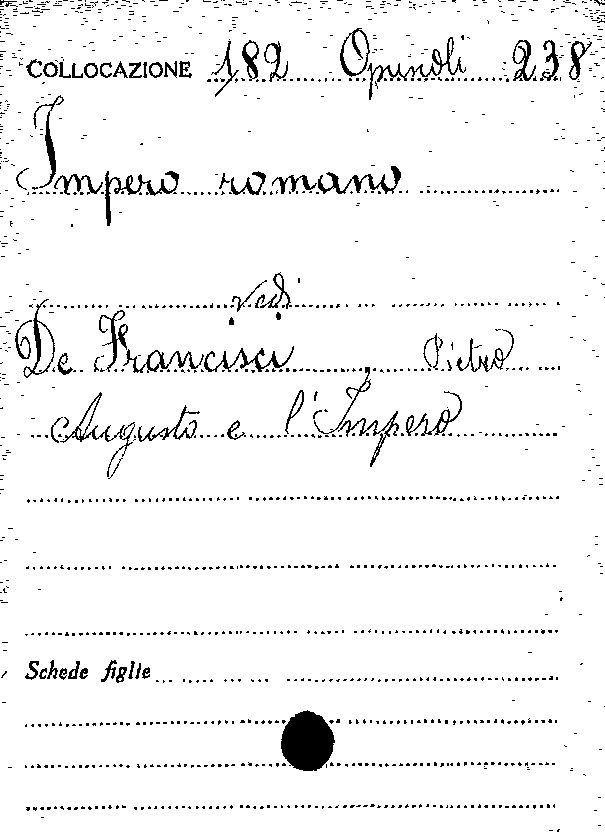 COLLOCAZIONE 182 Opuscoli 238
Impero romano
vedi
De Francisci, Pietro
Augusto e l'Impero
Schede figlie